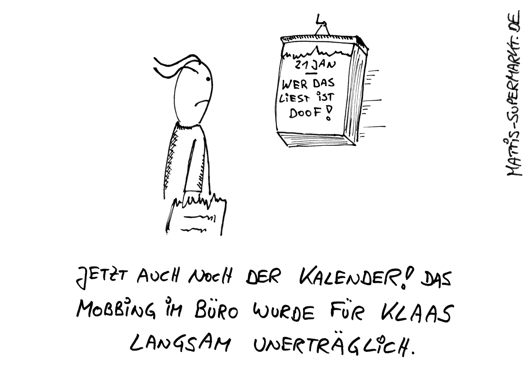 21 JAN
WER DAS
LIEST IST
DOOF!
MATTIS-SUPERMARKT.DE
JETZT AUCH NOCH DER KALENDER! DAS
MOBBING IM BÜRO WURDE FÜR KLAAS
LANGSAM UNERTRÄGLICH.